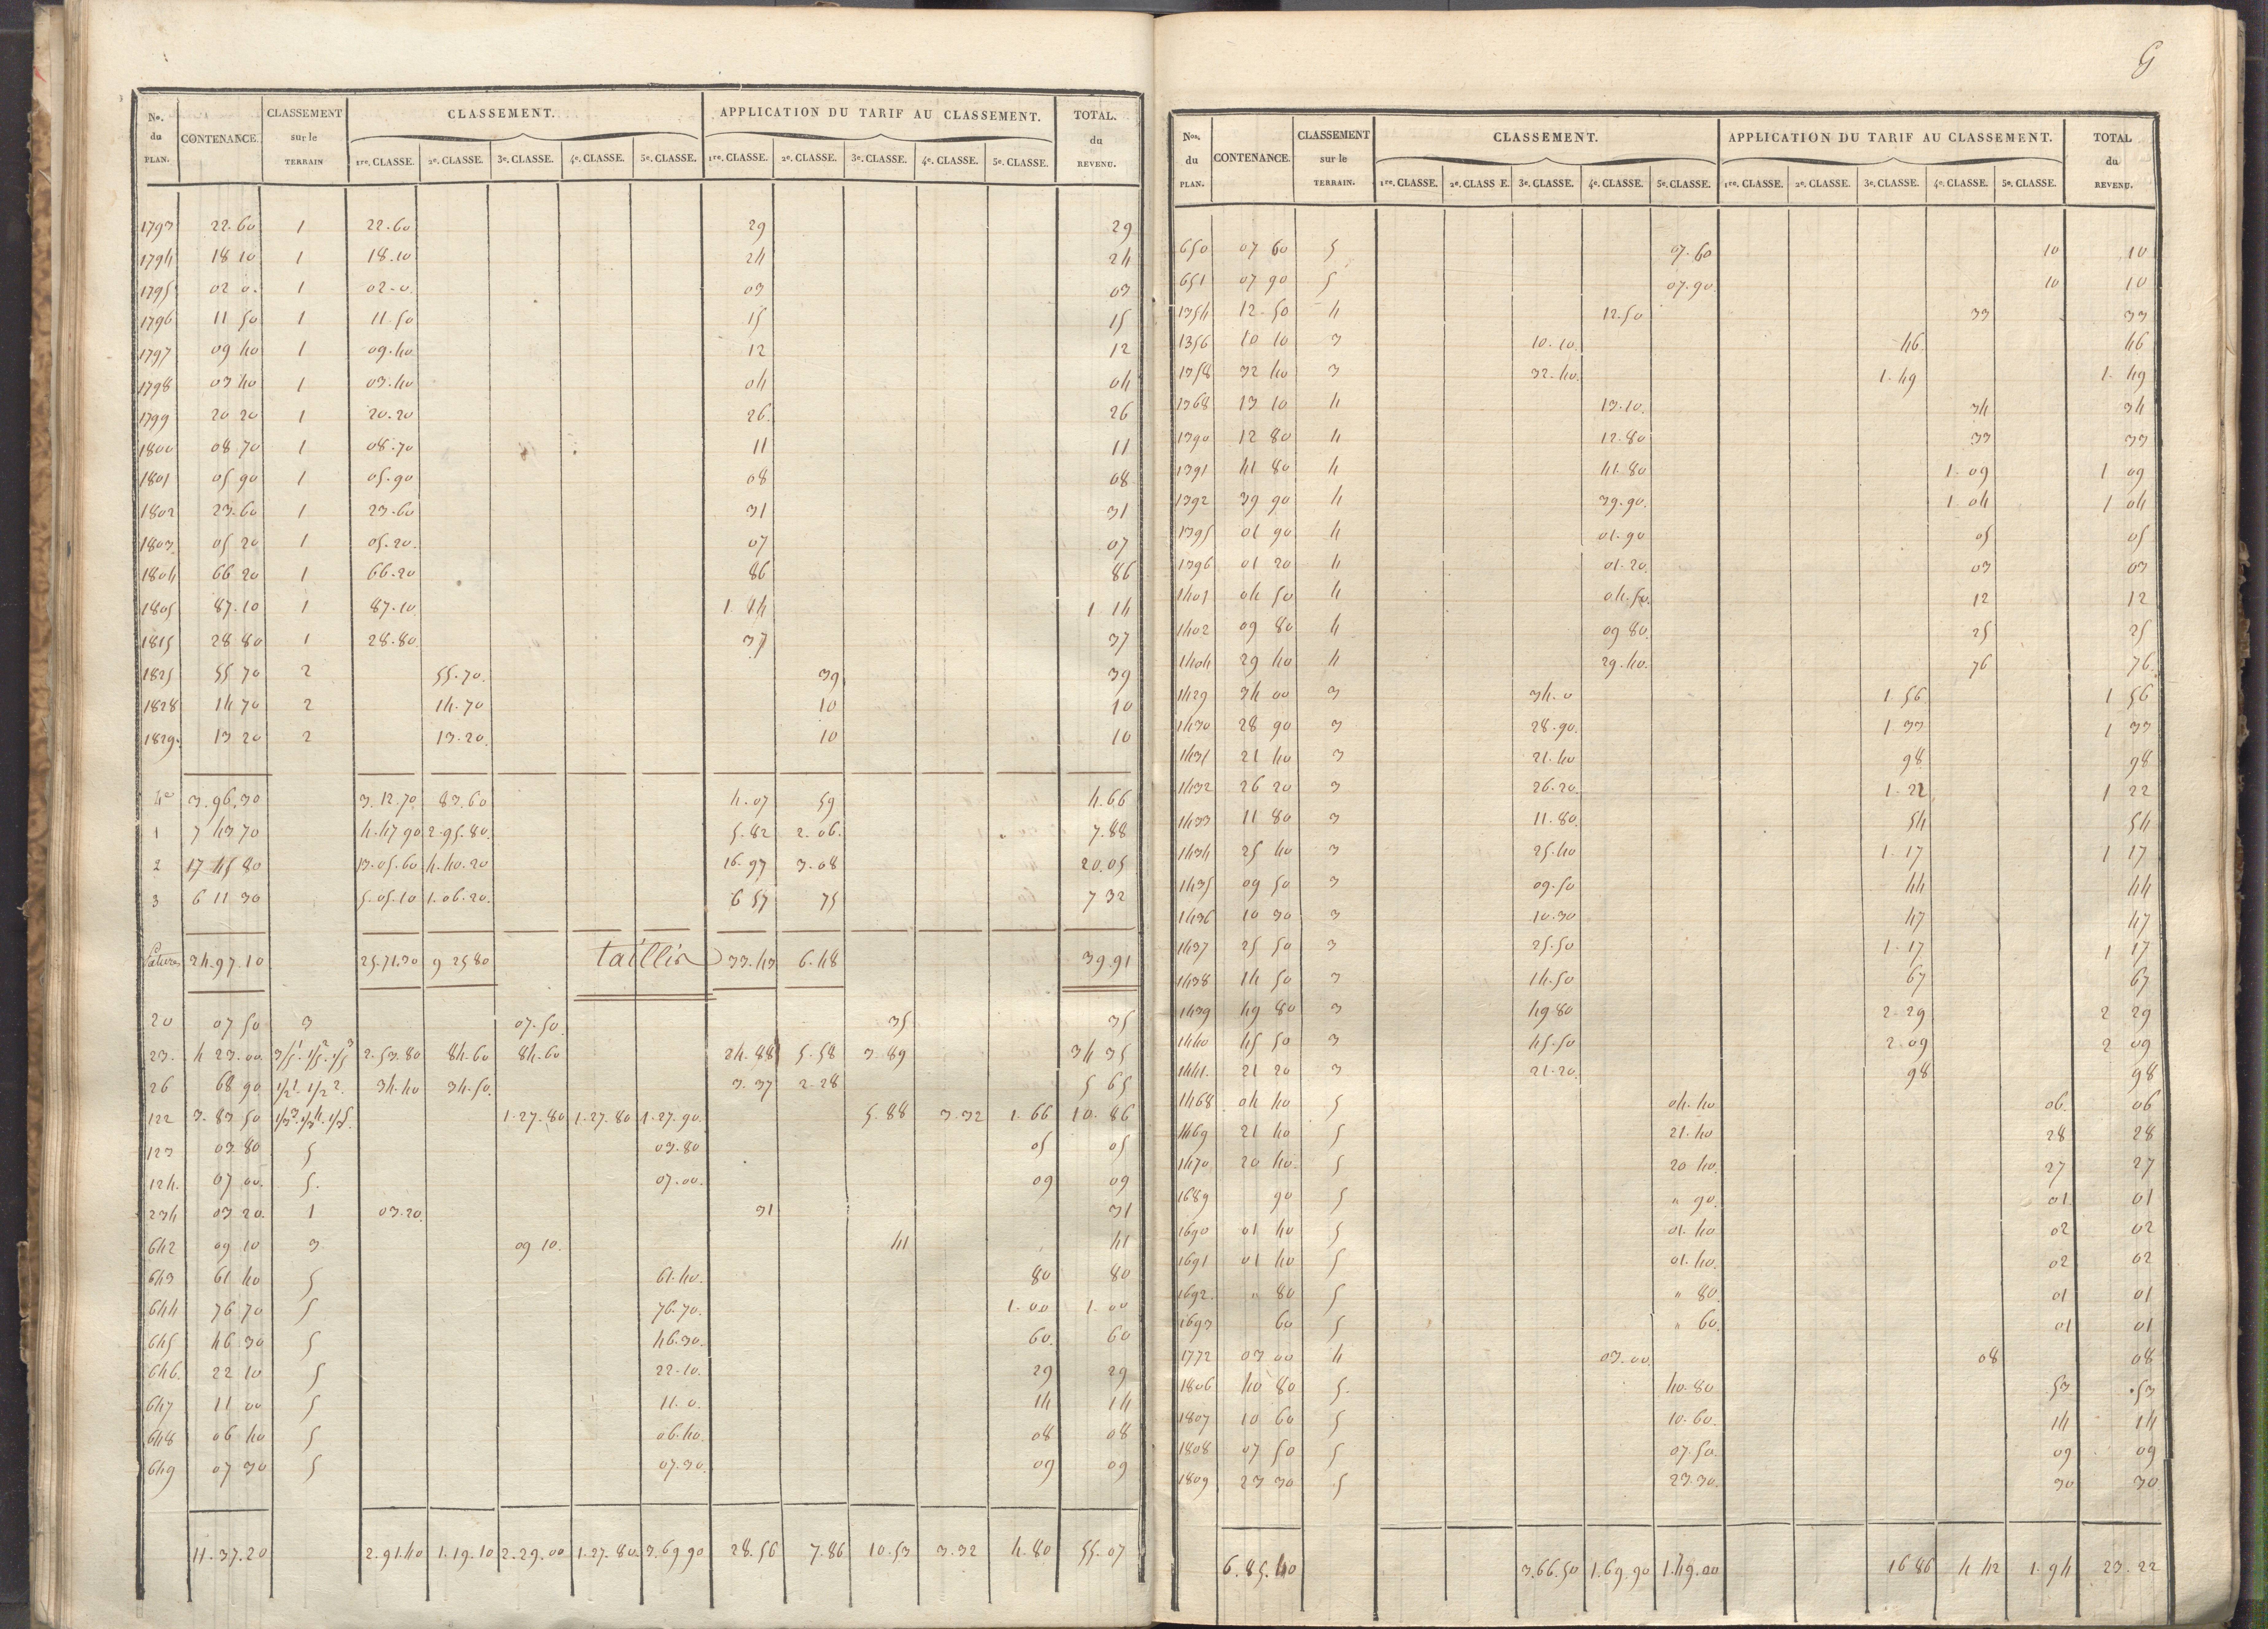 No. du PLAN. CONTENANCE. CLASSEMENT sur le TERRAIN CLASSEMENT. APPLICATION DU TARIF AU CLASSEMENT. TOTAL. du REVENU.
1re. CLASSE. 2e. CLASSE. 3e. CLASSE. 4e. CLASSE. 5e. CLASSE. 1re. CLASSE. 2e. CLASSE. 3e. CLASSE. 4e. CLASSE. 5e. CLASSE.
1793 22.60 1 22.60 29 29
1794 18 10 1 18.10 24 24
1795 02 0. 1 02-0. 03 03
1796 11 50 1 11.50 15 15
1797 09 40 1 09.40 12 12
1798 03 40 1 03.40 04 04
1799 20 20 1 20.20 26. 26
1800 08 70 1 08.70 11 11
1801 05 90 1 05.90 08 08
1802 23.60 1 23.60 31 31
1803. 05 20 1 05.20. 07 07
1804 66 20 1 66.20 86 86
1805 87.10 1 87.10 1.14 1 14
1815 28 80 1 28.80 37 37
1825 55 70 2 55.70. 39 39
1828 14 70 2 14.70 10 10
1829. 13 20 2 13.20. 10 10
4e 3.96.30 3.12.70 83.60 4.07 59 4.66
1 7 43 70 4.47 90 2.95.80. 5.82 2.06. 7.88
2 17 45 80 13.05.60 4.40.20 16.97 3.08 20.05
3 6 11 30 5.05.10 1.06.20. 6 57 75 7 32
Patures 34.97.10 25.71.30 9 25 80 taillis 33.43 6.48 39.91
20 07 50 3 07.50. 35 35
23. 4 23.00. 3/5 1 1/5 2 1/5 3 2.53.80 84.60 84.60 24.88 5.58 3.89 34 35
26 68 90 1/2 1. 1/2 2. 34.40 34.50. 3.37 2.28 5 65
122 3.83 50 1/3 3. 1/3 4. 1/3 5. 1.27.80 1.27.80 1.27.90. 5.88 3.32 1.66 10.86
123 03 80 5 03.80 05 05
124. 07 00. 5. 07.00. 09 09
234 03 20. 1 03.20. 31 31
642 09 10 3 09 10. 41 41
643 61 40 5 61.40. 80 80
644 76 70 5 76.70. 1.00 1.00
645 46 30 5 46.30. 60. 60
646. 22 10 5 22.10. 29 29
647 11 00 5 11.0. 14 14
648 06 40 5 06.40. 08 08
649 07 30 5 07.30. 09 09
11.37.20 2.91.40 1.19.10 2.29.00 1.27.80. 3.69 90 28.56 7.86 10.53 3.32 4.80 55.07
G
Nos. du PLAN. CONTENANCE. CLASSEMENT sur le TERRAIN. CLASSEMENT. APPLICATION DU TARIF AU CLASSEMENT. TOTAL du REVENU.
1re. CLASSE. 2e. CLASS E. 3e. CLASSE. 4e. CLASSE. 5e. CLASSE. 1re. CLASSE. 2e. CLASSE. 3e. CLASSE. 4e. CLASSE. 5e. CLASSE.
650 07 60 5 07.60 10 10
651 07 90 5 07.90. 10 10
1354 12.50 4 12.50 33 33
1356 10 10 3 10.10. 46 46
1358 32 40 3 32.40. 1.49 1.49
1368 13 10 4 13.10. 34 34
1390 12 80 4 12.80 33 33
1391 41 80 4 41.80 1.09 1 09
1392 39 90 4 39.90. 1.04 1 04
1395 01 90 4 01.90 05 05
1396 01 20 4 01.20. 03 03
1401 04 50 4 04.50. 12 12
1402 09 80 4 09 80. 25 25
1404 29 40 4 29.40. 76 76.
1429 34 00 3 34.0 1.56 1 56
1430 28 90 3 28.90. 1 33 1 33
1431 21 40 3 21.40 98 98
1432 26 20 3 26.20. 1.22 1 22
1433 11 80 3 11.80. 54 54
1434 25 40 3 25.40 1.17 1 17
1435 09 50 3 09.50 44 44
1436 10 30 3 10.30 47 47
1437 25 50 3 25.50 1.17 1 17
1438 14 50 3 14.50 67 67
1439 49 80 3 49.80 2.29 2 29
1440 45 50 3 45.50 2 09 2 09
1441. 21 20 3 21.20. 98 98
1468 04 40 5 04.40 06. 06
1469 21 40 5 21.40 28 28
1470 20 40. 5 20 40. 27 27
1689 90 5 " 90. 01 01
1690 01 40 5 01.40 02 02
1691 01 40 5 01.40. 02 02
1692. " 80 5 " 80. 01 01
1693 60 5 " 60. 01 01
1772 03 00 4 03.00. 08 08
1806 40 80 5. 40.80 53 .53
1807 10 60 5 10.60. 14 14
1808 07 50 5 07.50. 09 09
1809 23 30 5 23.30. 30 30
6.85.40 3.66.50 1.69.90 1.49.00 16 86 4 42 1.94 23.22